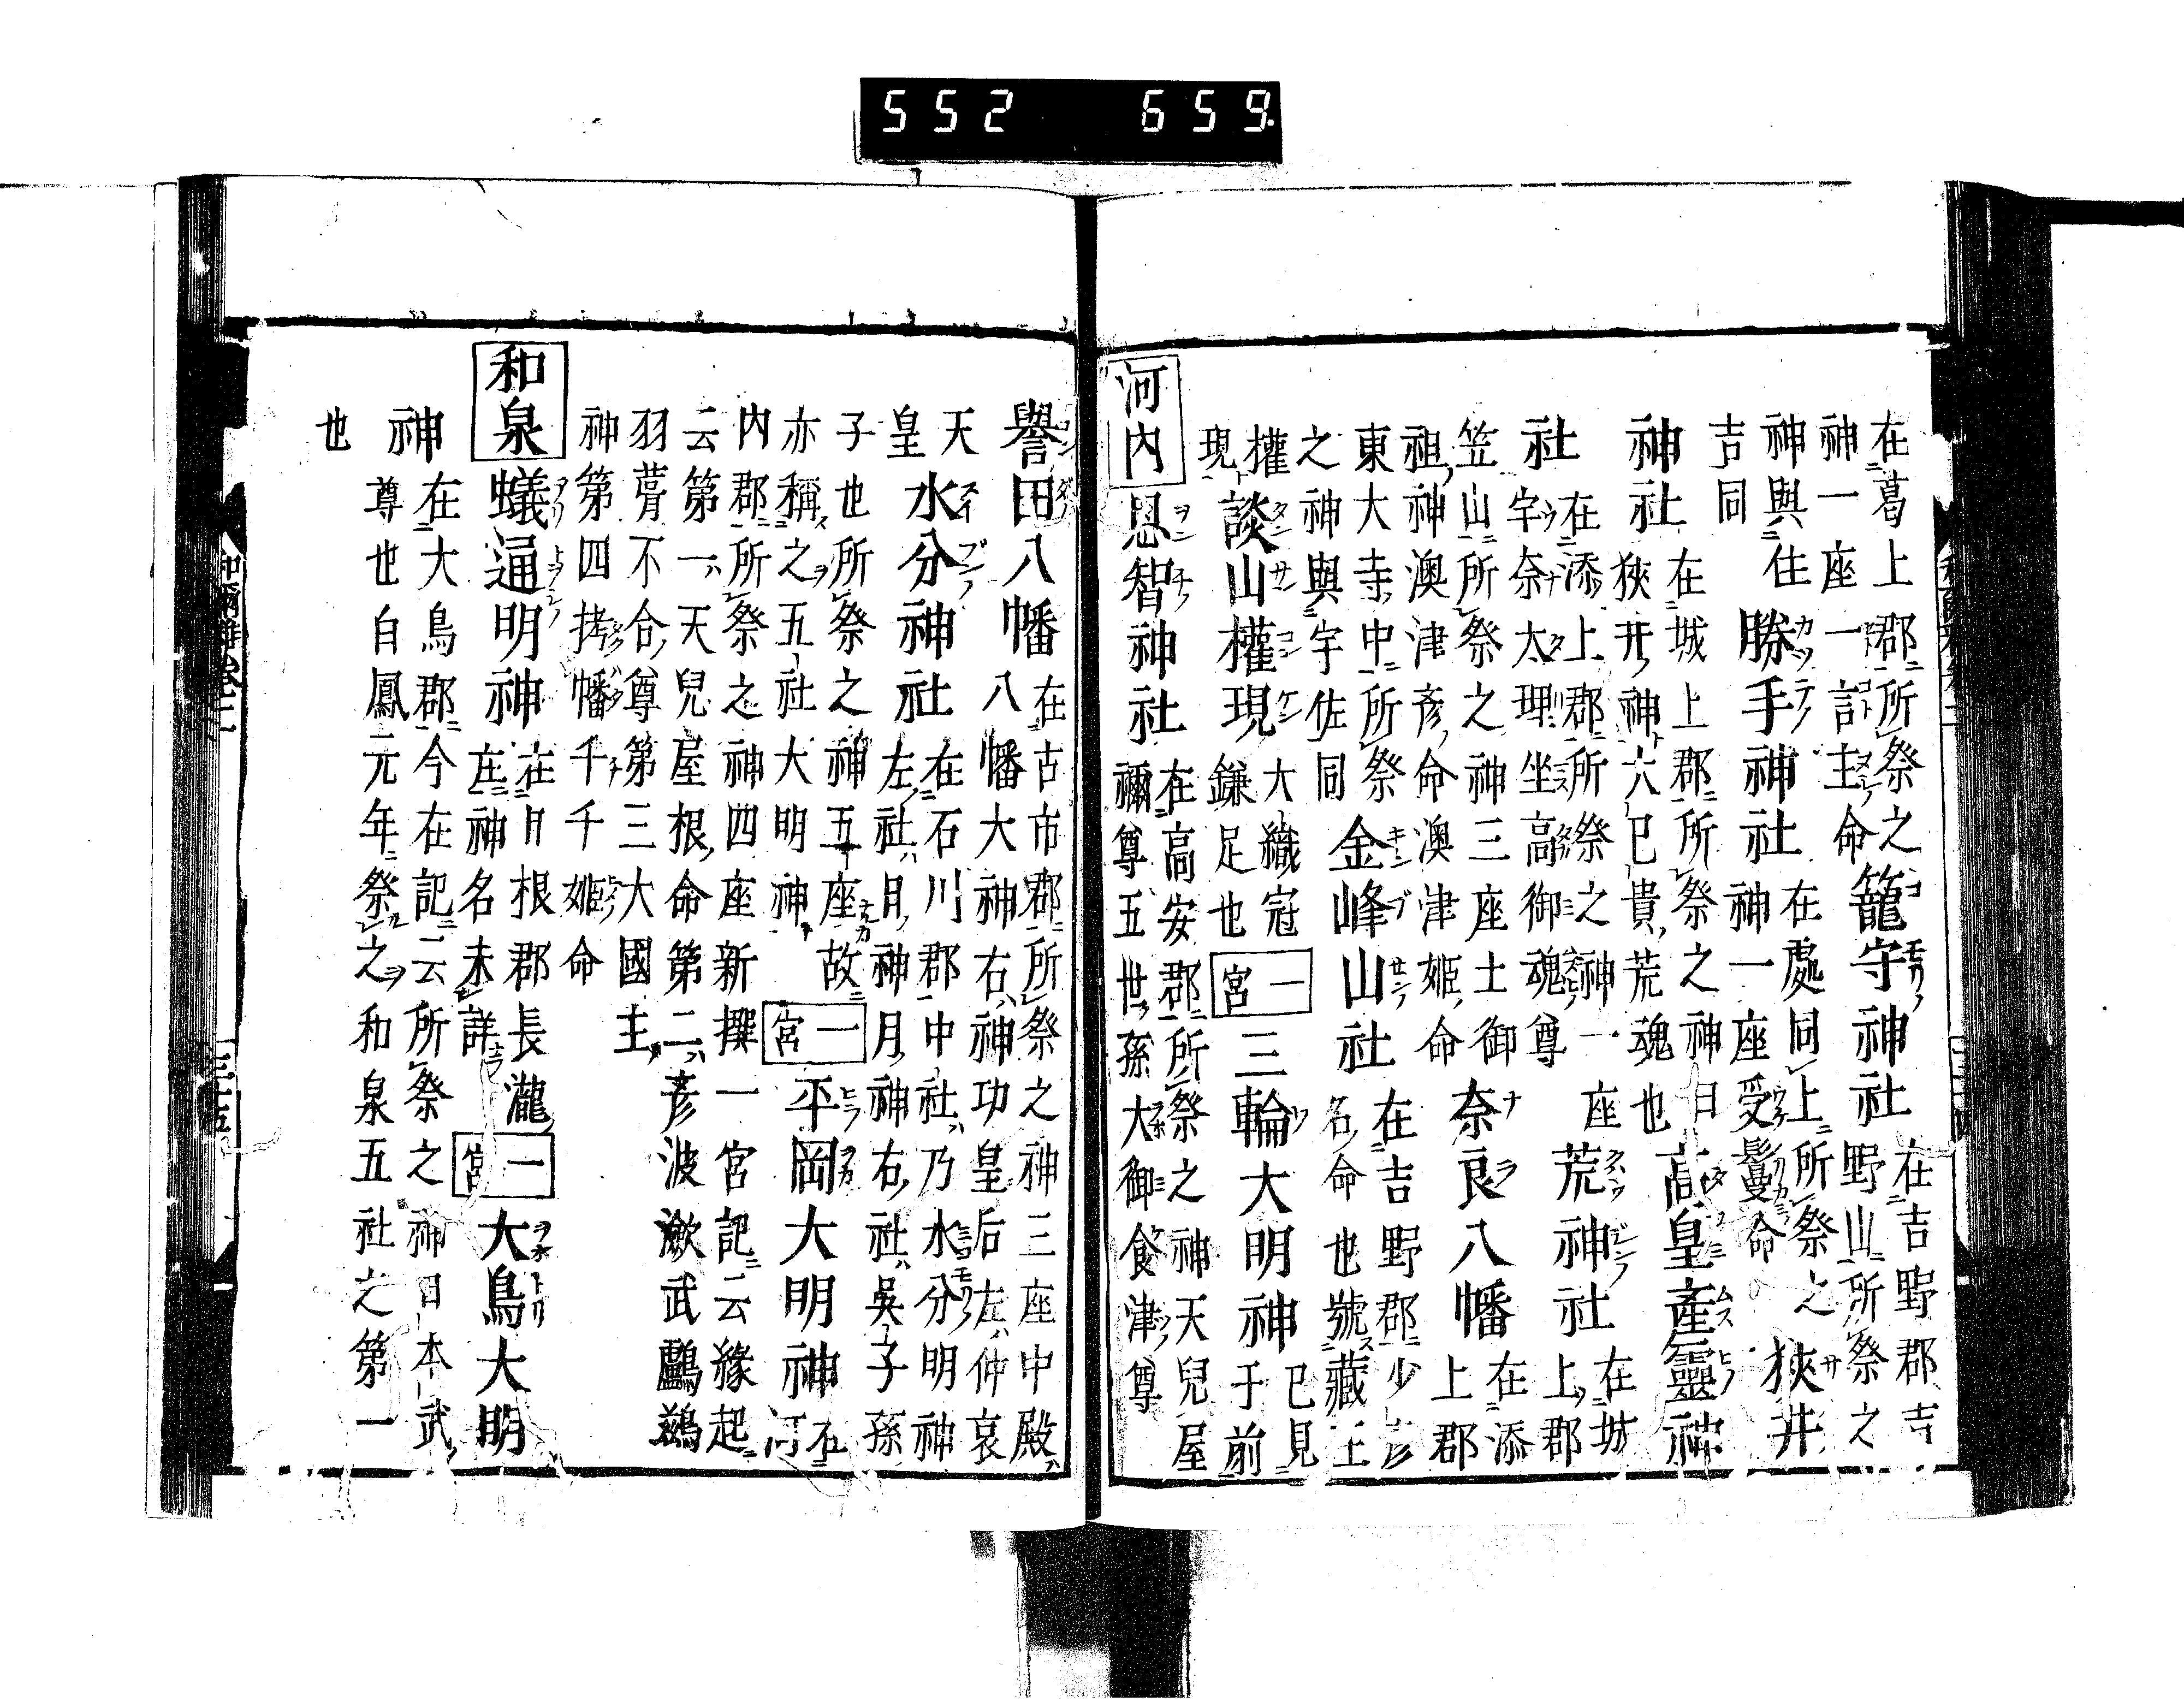 552 659
在葛上郡所祭之
神一座一言主命
籠守神社
在吉野郡吉
野山所祭之
神與住
吉同
勝手神社
在處同上所祭之
神一座受鬘命
狹井
神社
在城上郡所祭之神曰
狹井神大已貴荒魂也
高皇產靈神
社
在添上郡所祭之神一座
宇奈太理坐高御魂尊
荒神社
在城
上郡
笠山所祭之神三座土御
祖神澳津彥命澳津姬命
奈良八幡
在添
上郡
東大寺中所祭
之神與宇佐同
金峰山社
在吉野郡少彥
名命也號藏王
權
現
談山權現
大織冠
鎌足也
一宮
三輪大明神
已見
于前
河內
恩智神社
在高安郡所祭之神天兒屋
禰尊五世孫大御食津尊
譽田八幡
在古市郡所祭之神三座中殿
八幡大神右神功皇后左仲哀
天
皇
水分神社
在石川郡中社乃水分明神
左社日神月神右社吳子孫
子也所祭之神五座故
亦稱之五社大明神
一宮
平岡大明神
在
河
內郡所祭之神四座新撰一宮記云緣起
云第一天兒屋根命第二彥波瀲武鸕鷀
羽葺不合尊第三大國主
神第四栲幡千千姬命
和泉
蟻通明神
在日根郡長瀧
庄神名未詳
一宮
大鳥大明
神
在大鳥郡今在記云所祭之神日本武
尊也白鳳元年祭之和泉五社之第一
也